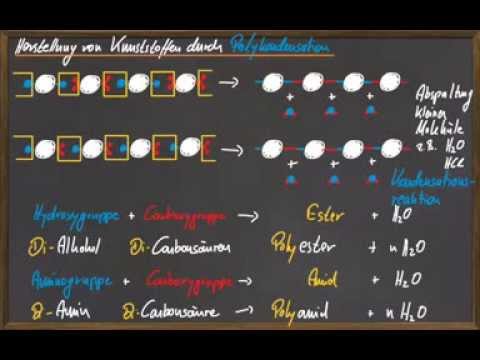 Herstellung von Kunststoffen durch Polykondensation
Abspaltung
kleiner
Moleküle
z.B. H₂O
HCl
Kondensations-
reaktion
+ + + +
+ + + +
Hydroxygruppe + Carboxygruppe → Ester + H₂O
Di-Alkohol Di-Carbonsäuren Polyester + n H₂O
Aminogruppe + Carboxygruppe → Amid + H₂O
Di-Amin Di-Carbonsäure → Polyamid + n H₂O